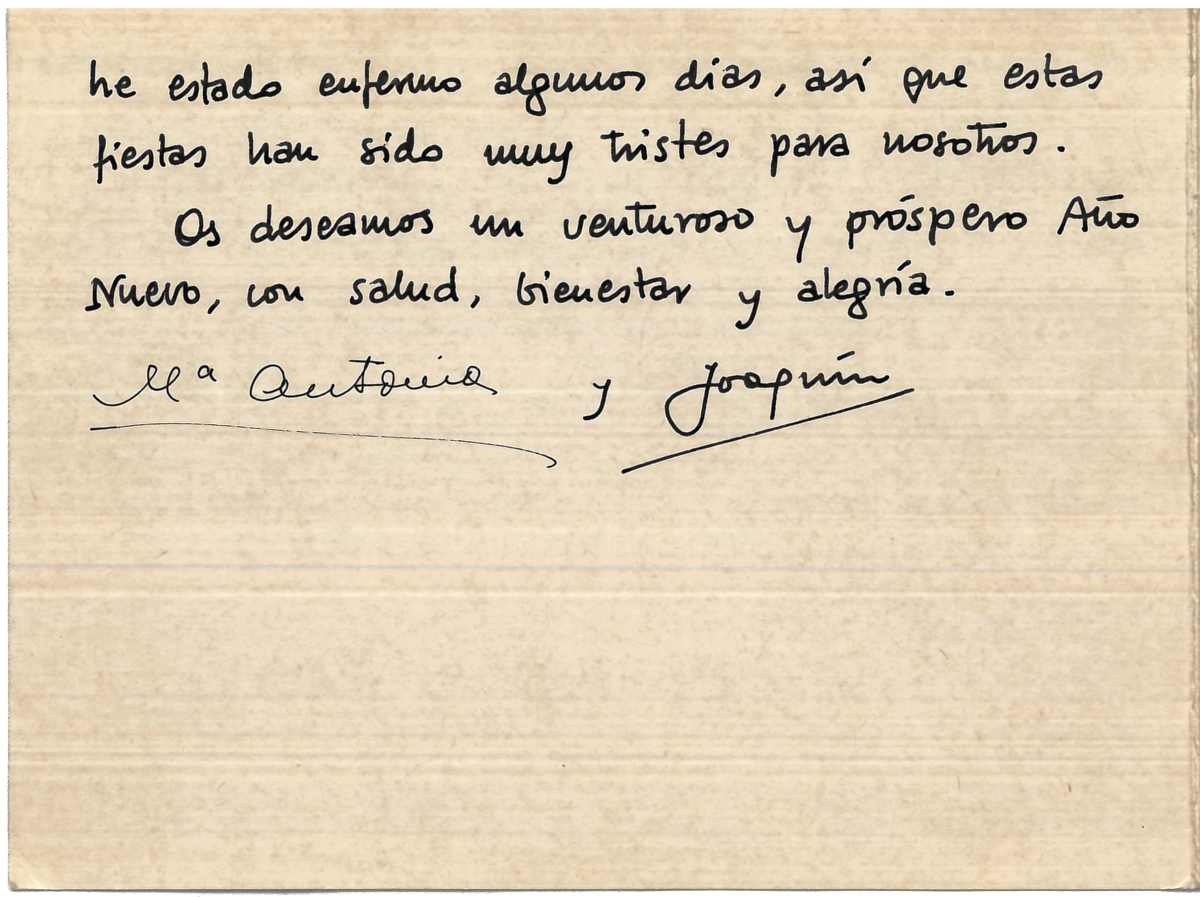 he estado enfermo algunos dias, así que estas
fiestas han sido muy tristes para nosotros.
Os deseamos un venturoso y próspero Año
Nuevo, con salud, bienestar y alegría.
Mª Antonia y Joaquín